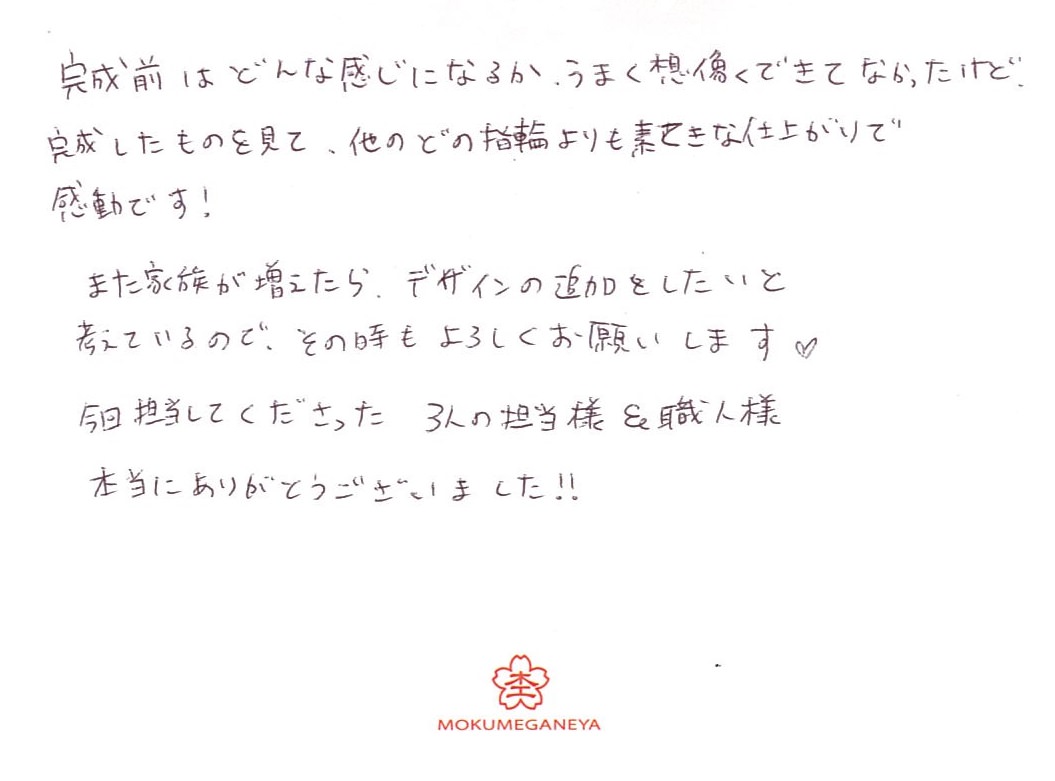 完成前はどんな感じになるか、うまく想像くできてなかったけど、
完成したものを見て、他のどの指輪よりも素てきな仕上がりで
感動です!
また家族が増えたら、デザインの追加をしたいと
考えているので、その時もよろしくお願いします♡
今回担当してくださった 3人の担当様&職人様
本当にありがとうございました!!
杢
MOKUMEGANEYA